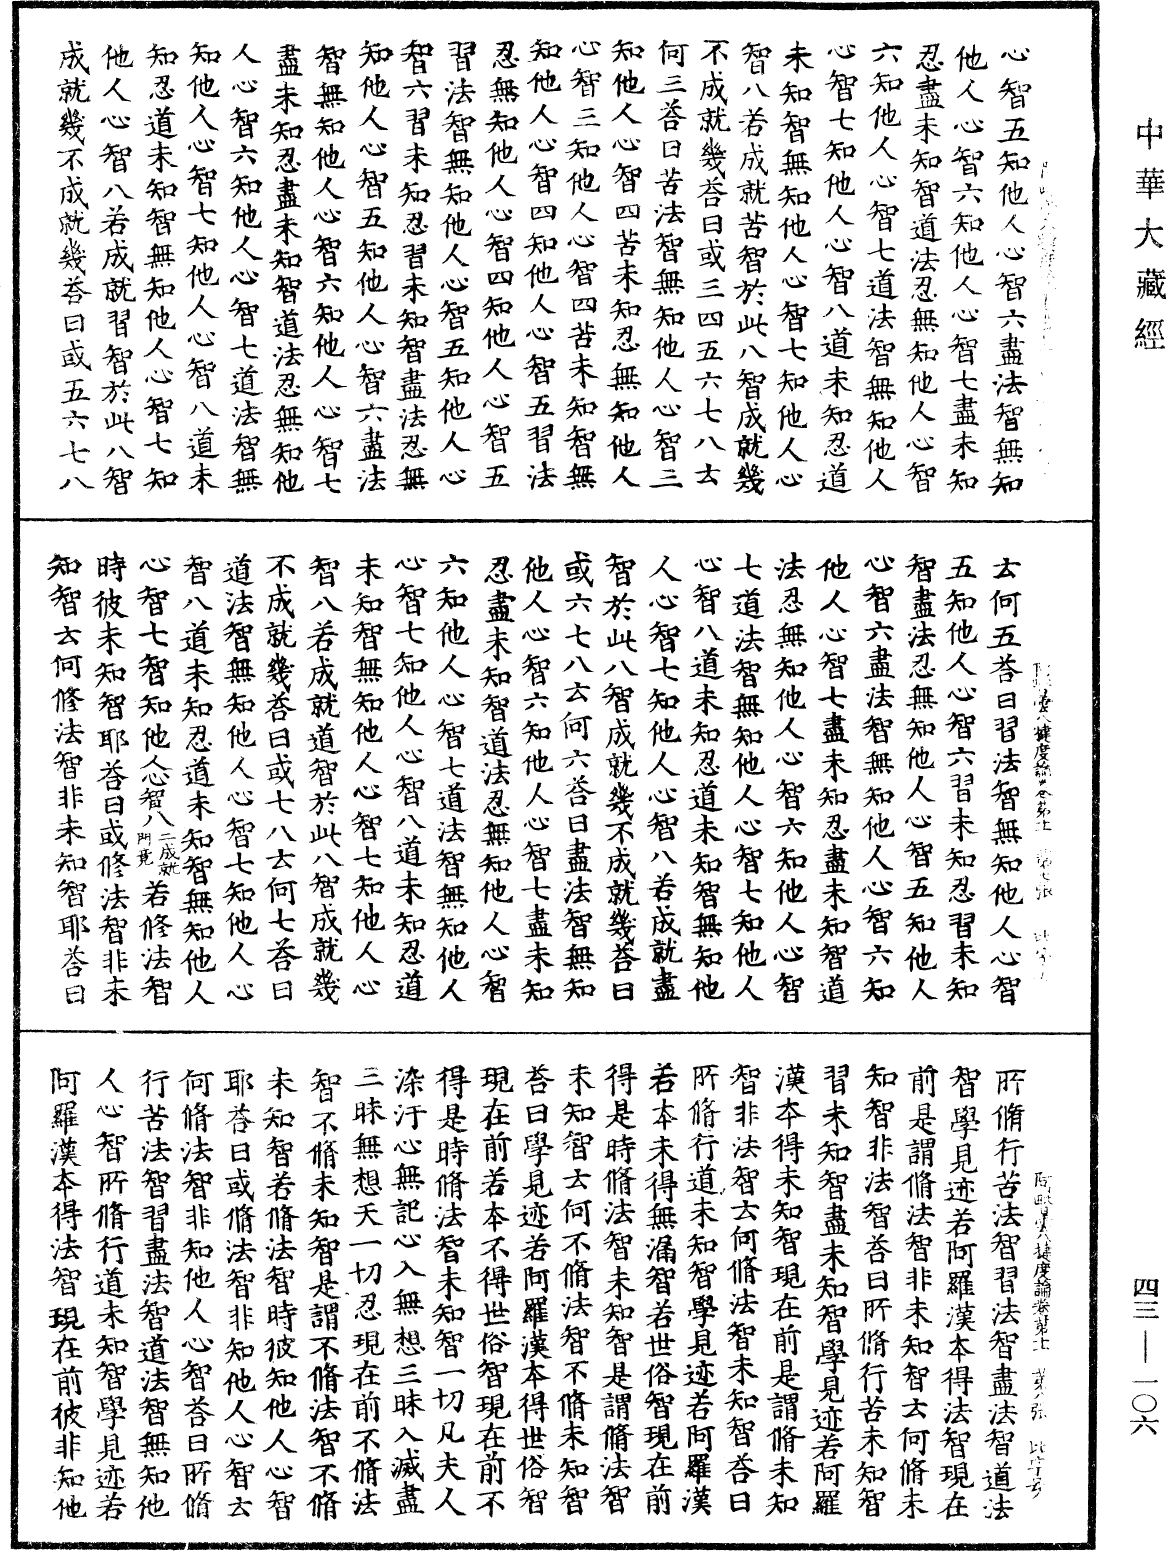 中華大藏經
心智五知他人心智六盡法智無知
他人心智六知他人心智七盡未知
忍盡未知智道法忍無知他人心智
六知他人心智七道法智無知他人
心智七知他人心智八道未知忍道
未知智無知他人心智七知他人心
智八若成就苦智於此八智成就幾
不成就幾荅曰或三四五六七八云
何三荅曰苦法智無知他人心智三
知他人心智四苦未知忍無知他人
心智三知他人心智四苦未知智無
知他人心智四知他人心智五習法
忍無知他人心智四知他人心智五
習法智無知他人心智五知他人心
智六習未知忍習未知智盡法忍無
知他人心智五知他人心智六盡法
智無知他人心智六知他人心智七
盡未知忍盡未知智道法忍無知他
人心智六知他人心智七道法智無
知他人心智七知他人心智八道未
知忍道未知智無知他人心智七知
他人心智八若成就習智於此八智
成就幾不成就幾荅曰或五六七八
云何五荅曰習法智無知他人心智
五知他人心智六習未知忍習未知
智盡法忍無知他人心智五知他人
心智六盡法智無知他人心智六知
他人心智七盡未知忍盡未知智道
法忍無知他人心智六知他人心智
七道法智無知他人心智七知他人
心智八道未知忍道未知智無知他
人心智七知他人心智八若成就盡
智於此八智成就幾不成就幾荅曰
或六七八云何六荅曰盡法智無知
他人心智六知他人心智七盡未知
忍盡未知智道法忍無知他人心智
六知他人心智七道法智無知他人
心智七知他人心智八道未知忍道
未知智無知他人心智七知他人心
智八若成就道智於此八智成就幾
不成就幾荅曰或七八云何七荅曰
道法智無知他人心智七知他人心
智八道未知忍道未知智無知他人
心智七智知他人心智八二成就門竟若修法智
時彼未知智耶荅曰或修法智非未
知智云何修法智非未知智耶荅曰
所脩行苦法智習法智盡法智道法
智學見迹若阿羅漢本得法智現在
前是謂脩法智非未知智云何脩未
知智非法智荅曰所脩行苦未知智
習未知智盡未知智學見迹若阿羅
漢本得未知智現在前是謂脩未知
智非法智云何脩法智未知智荅曰
所脩行道未知智學見迹若阿羅漢
若本未得無漏智若世俗智現在前
得是時脩法智未知智是謂脩法智
未知智云何不脩法智不脩未知智
荅曰學見迹若阿羅漢本得世俗智
現在前若本不得世俗智現在前不
得是時脩法智未知智一切凡夫人
染汙心無記心入無想三昧入滅盡
三昧無想天一切忍現在前不脩法
智不脩未知智是謂不脩法智不脩
未知智若脩法智時彼知他人心智
耶荅曰或脩法智非知他人心智云
何脩法智非知他人心智荅曰所脩
行苦法智習盡法智道法智無知他
人心智所脩行道未知智學見迹若
阿羅漢本得法智現在前彼非知他
四三—一〇六